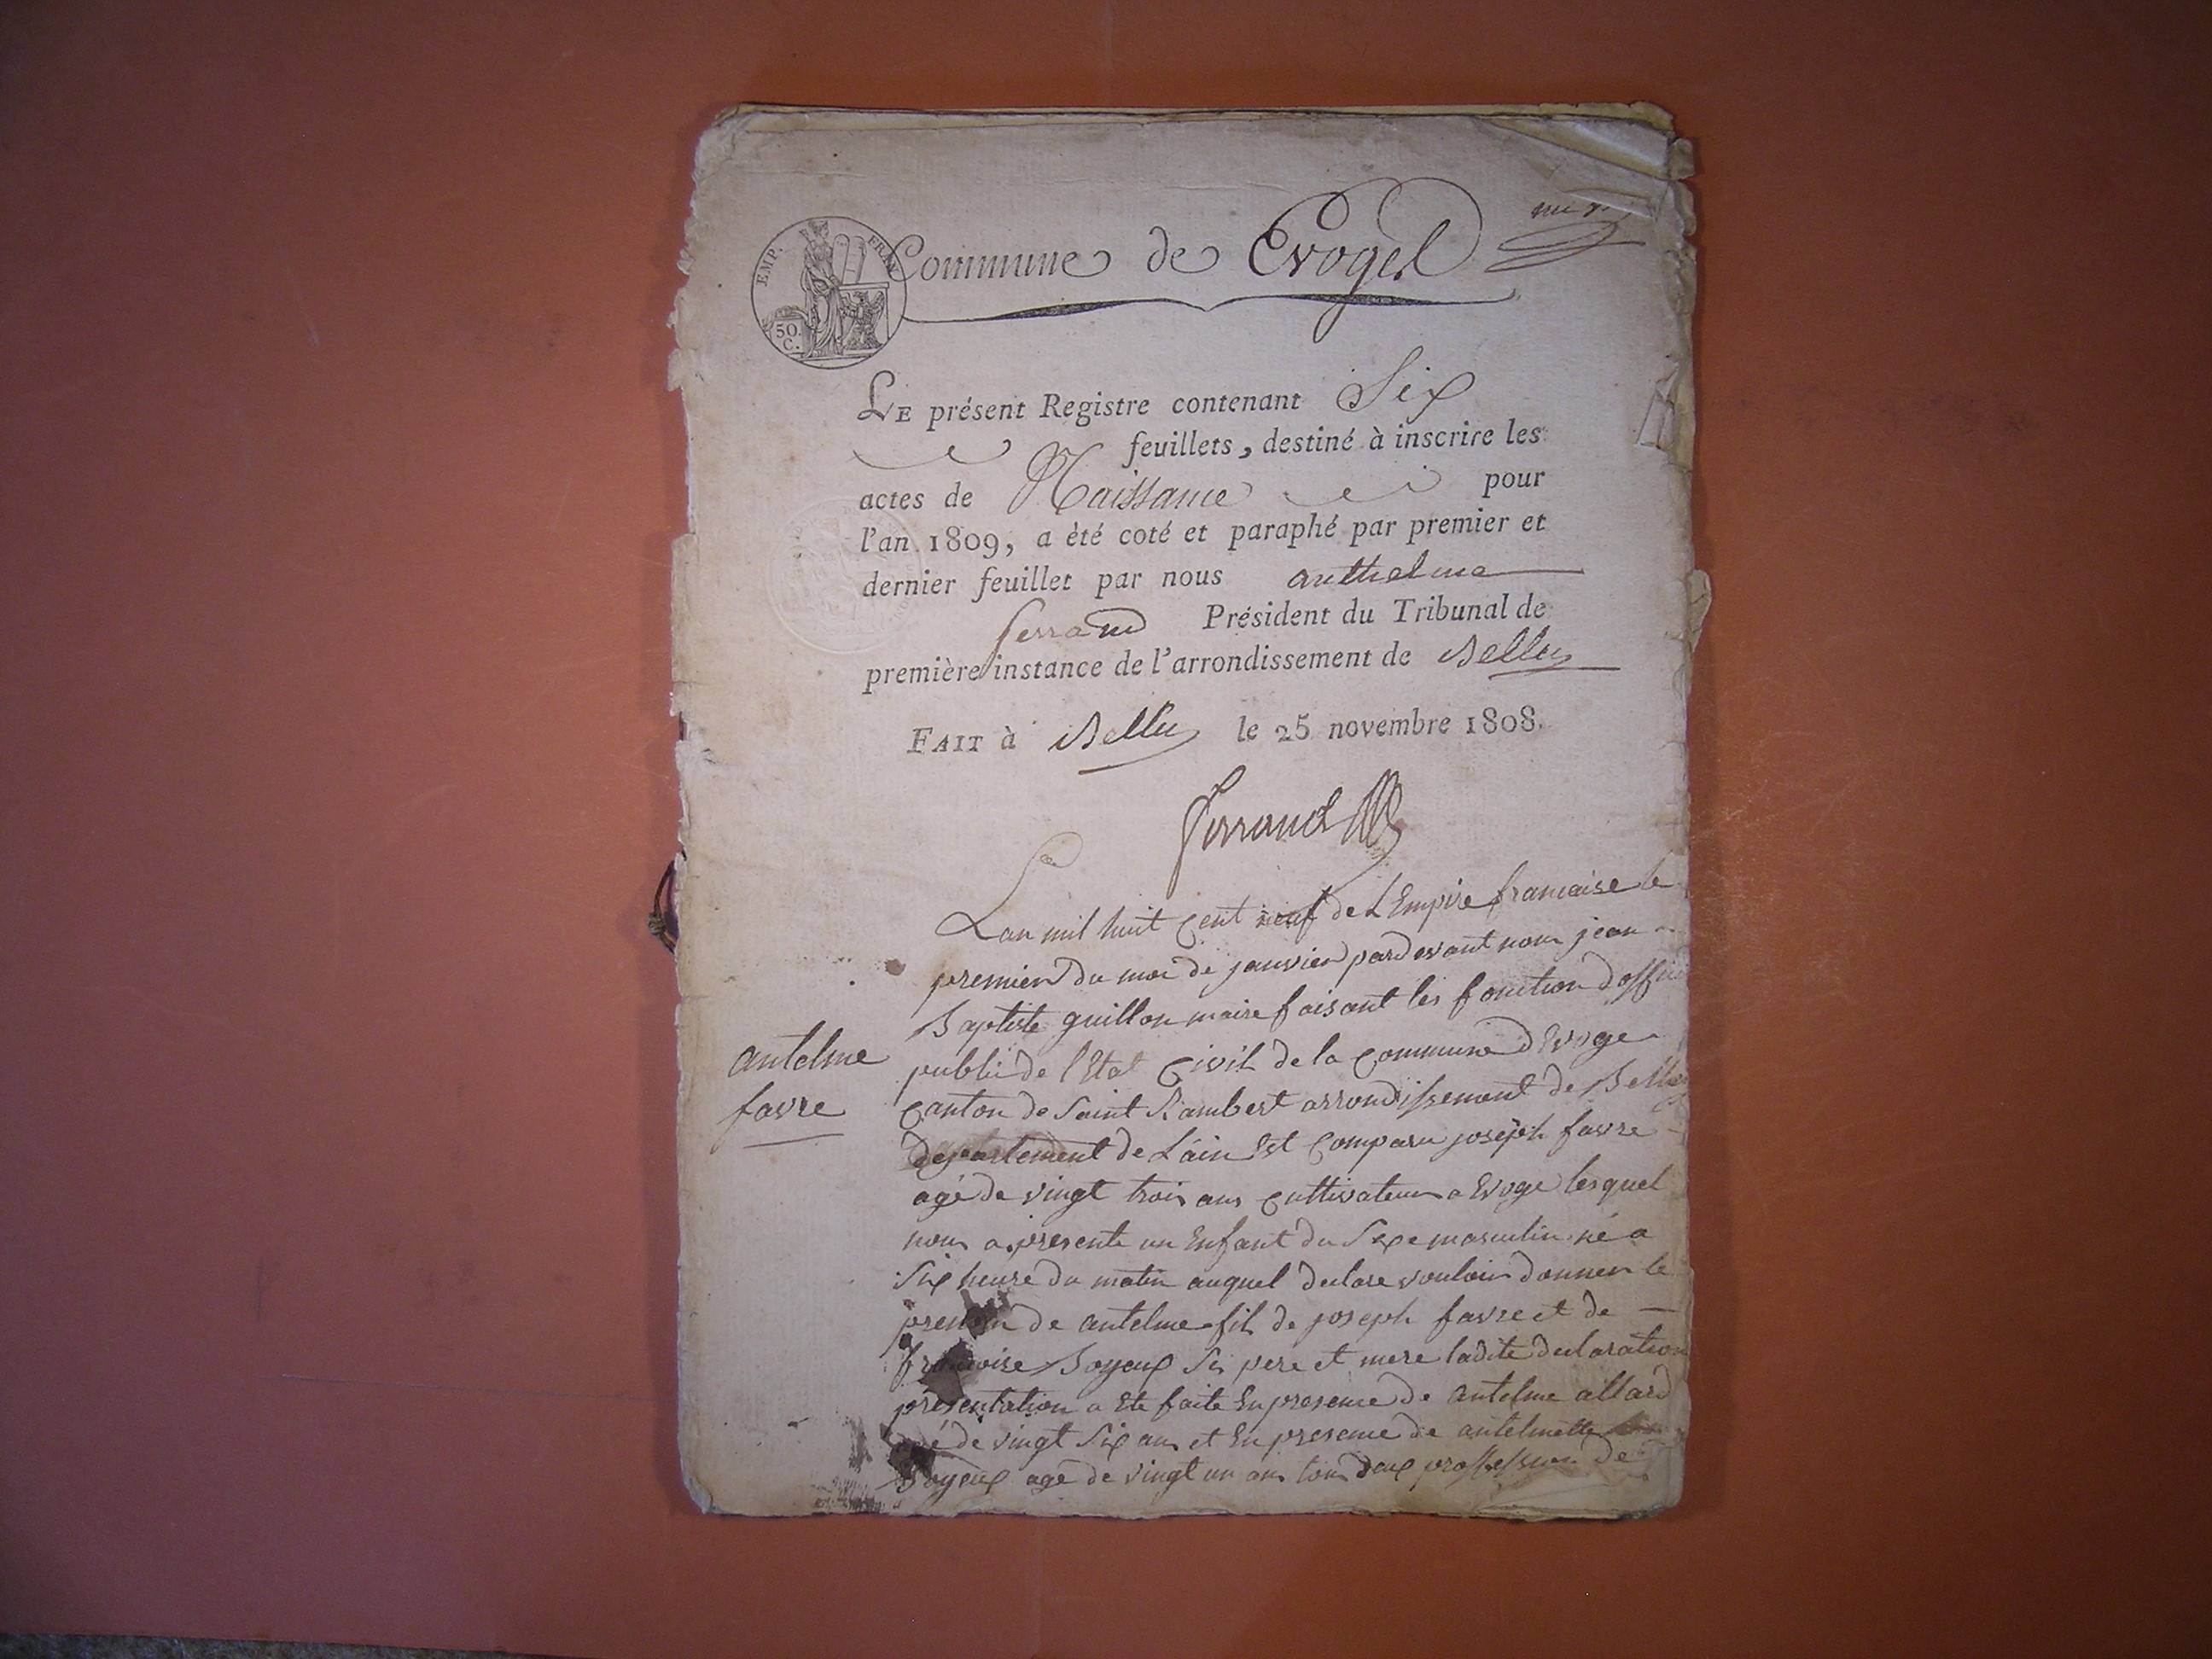 EMP. FRAN
50. C.
Commune de Evoges
LE présent Registre contenant Six
feuillets, destiné à inscrire les
actes de Naissance pour
l'an 1809, a été coté et paraphé par premier et
dernier feuillet par nous anthelme
ferrand Président du Tribunal de
première instance de l'arrondissement de Belley
FAIT à Belley le 25 novembre 1808.
ferrand
Lan mil huit Cent neuf de L Empire francaise le
premier du moi de janvier pardevant nous jean
Baptiste guillon maire faisant les fonction doffic
public de l Etat Civil de la Commune d Evoge
antelme
favre
Canton de Saint Rambert arrondissement de Belley
departement de Lain Est Comparu joseph favre
agé de vingt trois ans Cultivateur a Evoge lesquel
nous a presente un Enfant du Sexe masculin né a
Six heure du matin auquel declare vouloir donner le
prenom de antelme fils de joseph favre et de
francoise Boyeux Ses pere et mere ladite declaration
presentation a Ete faite En presence de antelme allard
agé de vingt Six ans et En presence de antelmette
Boyeux agé de vingt un ans tous deux proffession de